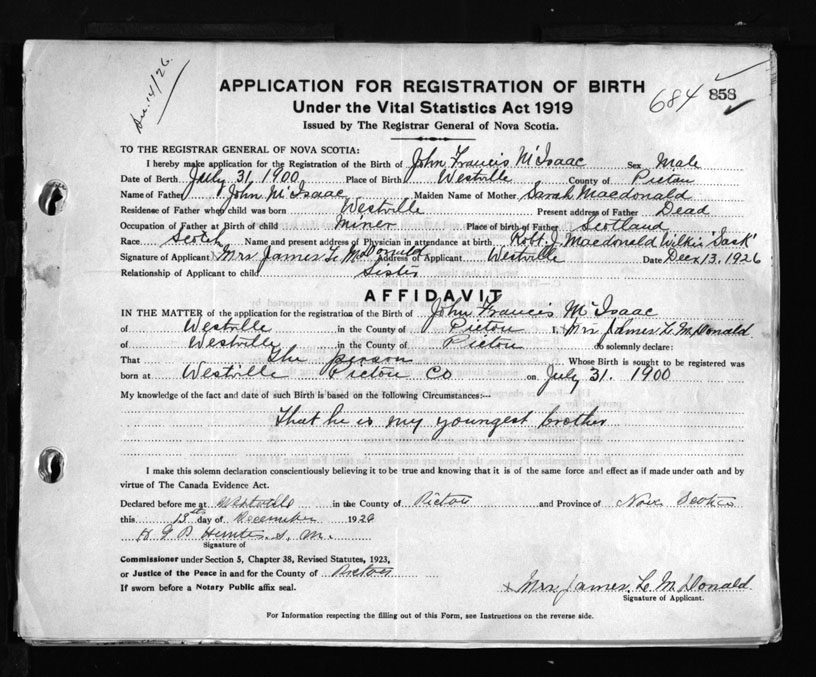 Dec. 14/26.
APPLICATION FOR REGISTRATION OF BIRTH
684 858
Under the Vital Statistics Act 1919
Issued by The Registrar General of Nova Scotia.
TO THE REGISTRAR GENERAL OF NOVA SCOTIA:
I hereby make application for the Registration of the Birth of John Francis McIsaac Sex Male
Date of Birth July 31, 1900 Place of Birth Westville County of Pictou
Name of Father John McIsaac Maiden Name of Mother Sarah Macdonald
Residense of Father when child was born Westville Present address of Father Dead
Occupation of Father at Birth of child Miner Place of birth of Father Scotland
Race Scotch Name and present address of Physician in attendance at birth Robt. J. Macdonald Wilkie 'Sask'
Signature of Applicant Mrs James L. McDonald Address of Applicant Westville Date Dec 13, 1926
Relationship of Applicant to child Sister
AFFIDAVIT
IN THE MATTER of the application for the registration of the Birth of John Francis McIsaac
of Westville in the County of Pictou I, Mrs James L. McDonald
of Westville in the County of Pictou do solemnly declare:
That the person Whose Birth is sought to be registered was
born at Westville Pictou Co on July 31. 1900
My knowledge of the fact and date of such Birth is based on the following Circumstances:--
That he is my youngest brother
I make this solemn declaration conscientiously believing it to be true and knowing that it is of the same force and effect as if made under oath and by
virtue of The Canada Evidence Act.
Declared before me at Westville in the County of Pictou and Province of Nova Scotia
this 13th day of December 1926
S. M.
Signature of
Commissioner under Section 5, Chapter 38, Revised Statutes, 1923,
or Justice of the Peace in and for the County of Pictou
If sworn before a Notary Public affix seal.
x Mrs James L. McDonald
Signature of Applicant.
For Information respecting the filling out of this Form, see Instructions on the reverse side.